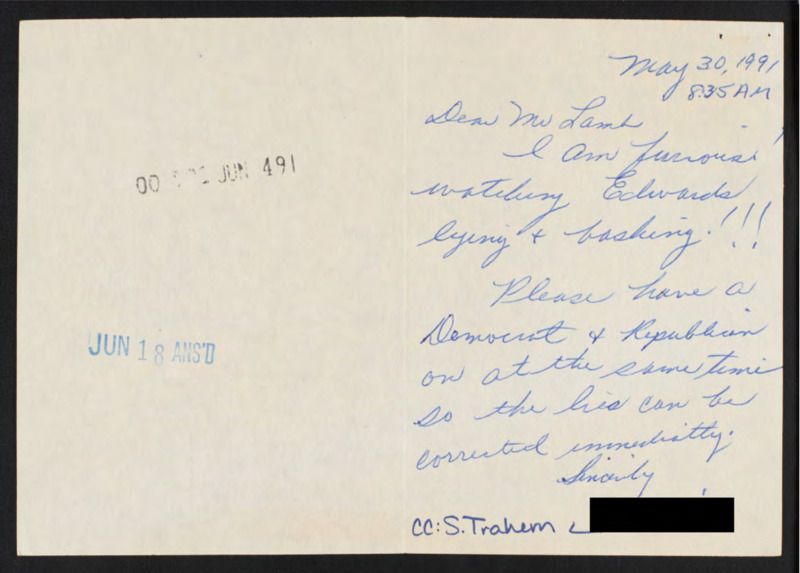 00 JUN 491
JUN 18 ANS'D
May 30, 1991
8:35 AM
Dear Mr Lamb
I am furious!
watching Edwards
lying & bashing!!!
Please have a
Democrat & Republican
on at the same time
so the lies can be
corrected immediatly.
Sincerly
CC: S. Trahern